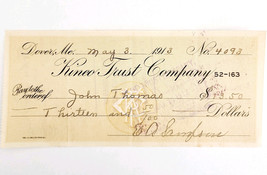 Dover, Me. May 3. 1913 No. 4093
Kineo Trust Company 52-163
Pay to the order of John Thomas $ 50
Thirteen and 50/100 Dollars